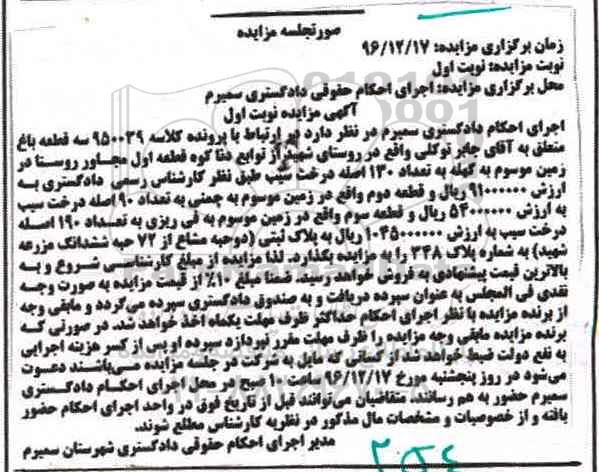 صورتجلسه مزایده
زمان برگزاری مزایده: ۹۶/۱۲/۱۷
نوبت مزایده: نوبت اول
محل برگزاری مزایده: اجرای احکام حقوقی دادگستری سمیرم
آگهی مزایده نوبت اول
اجرای احکام دادگستری سمیرم در نظر دارد در ارتباط با پرونده کلاسه ۹۵۰۰۳۹ سه قطعه باغ
متعلق به آقای جابر توکلی واقع در روستای شهید از توابع دنا کوه قطعه اول مجاور روستا در
زمین موسوم به کهله به تعداد ۱۳۰ اصله درخت سیب طبق نظر کارشناس رسمی دادگستری به
ارزش ۹۱۰۰۰۰۰۰ ریال و قطعه دوم واقع در زمین موسوم به چمنی به تعداد ۹۰ اصله درخت سیب
به ارزش ۵۴۰۰۰۰۰۰ ریال و قطعه سوم واقع در زمین موسوم به فی ریزی به تعداد ۱۹۰ اصله
درخت سیب به ارزش ۱۰۴۵۰۰۰۰۰۰ ریال به پلاک ثبتی (دوحبه مشاع از ۷۲ حبه ششدانگ مزرعه
شهید) به شماره پلاک ۳۴۸ را به مزایده بگذارد. لذا مزایده از مبلغ کارشناسی شروع و به
بالاترین قیمت پیشنهادی به فروش خواهد رسید. ضمنا مبلغ ۱۰٪ از قیمت مزایده به صورت وجه
نقدی فی المجلس به عنوان سپرده دریافت و به صندوق دادگستری سپرده می‌گردد و مابقی وجه
از برنده مزایده با نظر اجرای احکام حداکثر ظرف مهلت یکماه اخذ خواهد شد. در صورتی که
برنده مزایده مابقی وجه مزایده را ظرف مهلت مقرر نپردازد سپرده او پس از کسر هزینه اجرایی
به نفع دولت ضبط خواهد شد از کسانی که مایل به شرکت در جلسه مزایده می‌باشند دعوت
می‌شود در روز پنجشنبه مورخ ۹۶/۱۲/۱۷ ساعت ۱۰ صبح در محل اجرای احکام دادگستری
سمیرم حضور به هم رسانند. متقاضیان می‌توانند قبل از تاریخ فوق در واحد اجرای احکام حضور
یافته و از خصوصیات و مشخصات مال مذکور در نظریه کارشناس مطلع شوند.
مدیر اجرای احکام حقوقی دادگستری شهرستان سمیرم